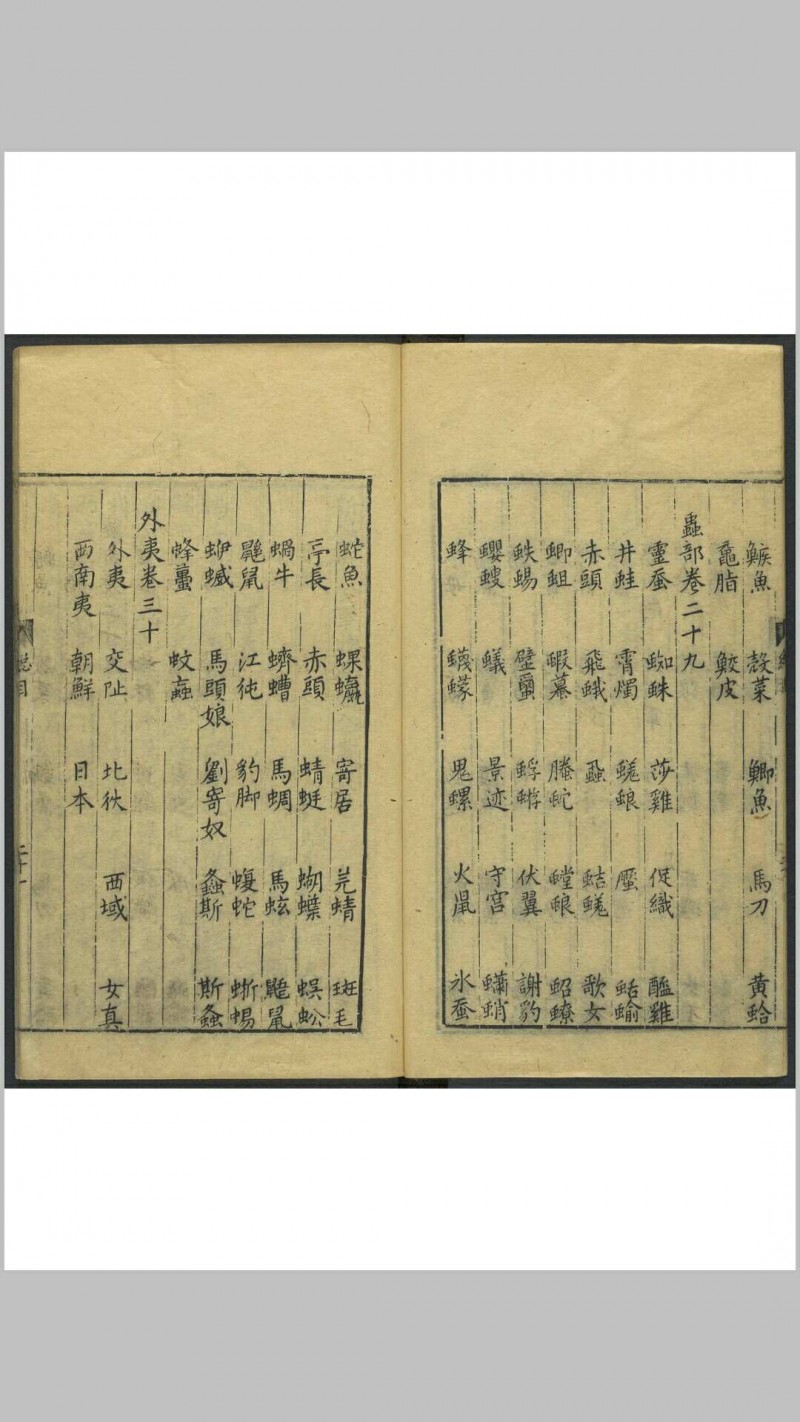 鰕魚 殼菜 鯽魚 馬刀 黃蛤
黿脂 鮫皮
蟲部卷二十九
靈蚕 蜘蛛 莎雞 促織 醯雞
井蛙 霄燭 蜣蜋 蜃 蛄蝓
赤頭 飛蛾 蝨 蛣蜣 歌女
螂蛆 蝦蟇 螣蛇 螳蜋 蛁蟟
蛈蜴 壁蠒 蜉蝣 伏翼 謝豹
蠳螋 蟻 景迹 守宮 蠨蛸
蜂 蠛蠓 鬼螺 火鼠 氷蚕
蛇魚 蜾蠃 寄居 芫蜻 斑毛
亭長 赤頭 蜻蜓 蝴蝶 蜈蚣
蝸牛 蠐螬 馬蜩 馬蚿 鼴鼠
鼰鼠 江㹠 豹脚 蝮蛇 蜥蜴
蛜蝛 馬頭娘 劉寄奴 螽斯 斯螽
蜂蠆 蚊蝱
外夷卷三十
外夷 交阯 北狄 西域 女真
西南夷 朝鮮 日本
總目
二十一